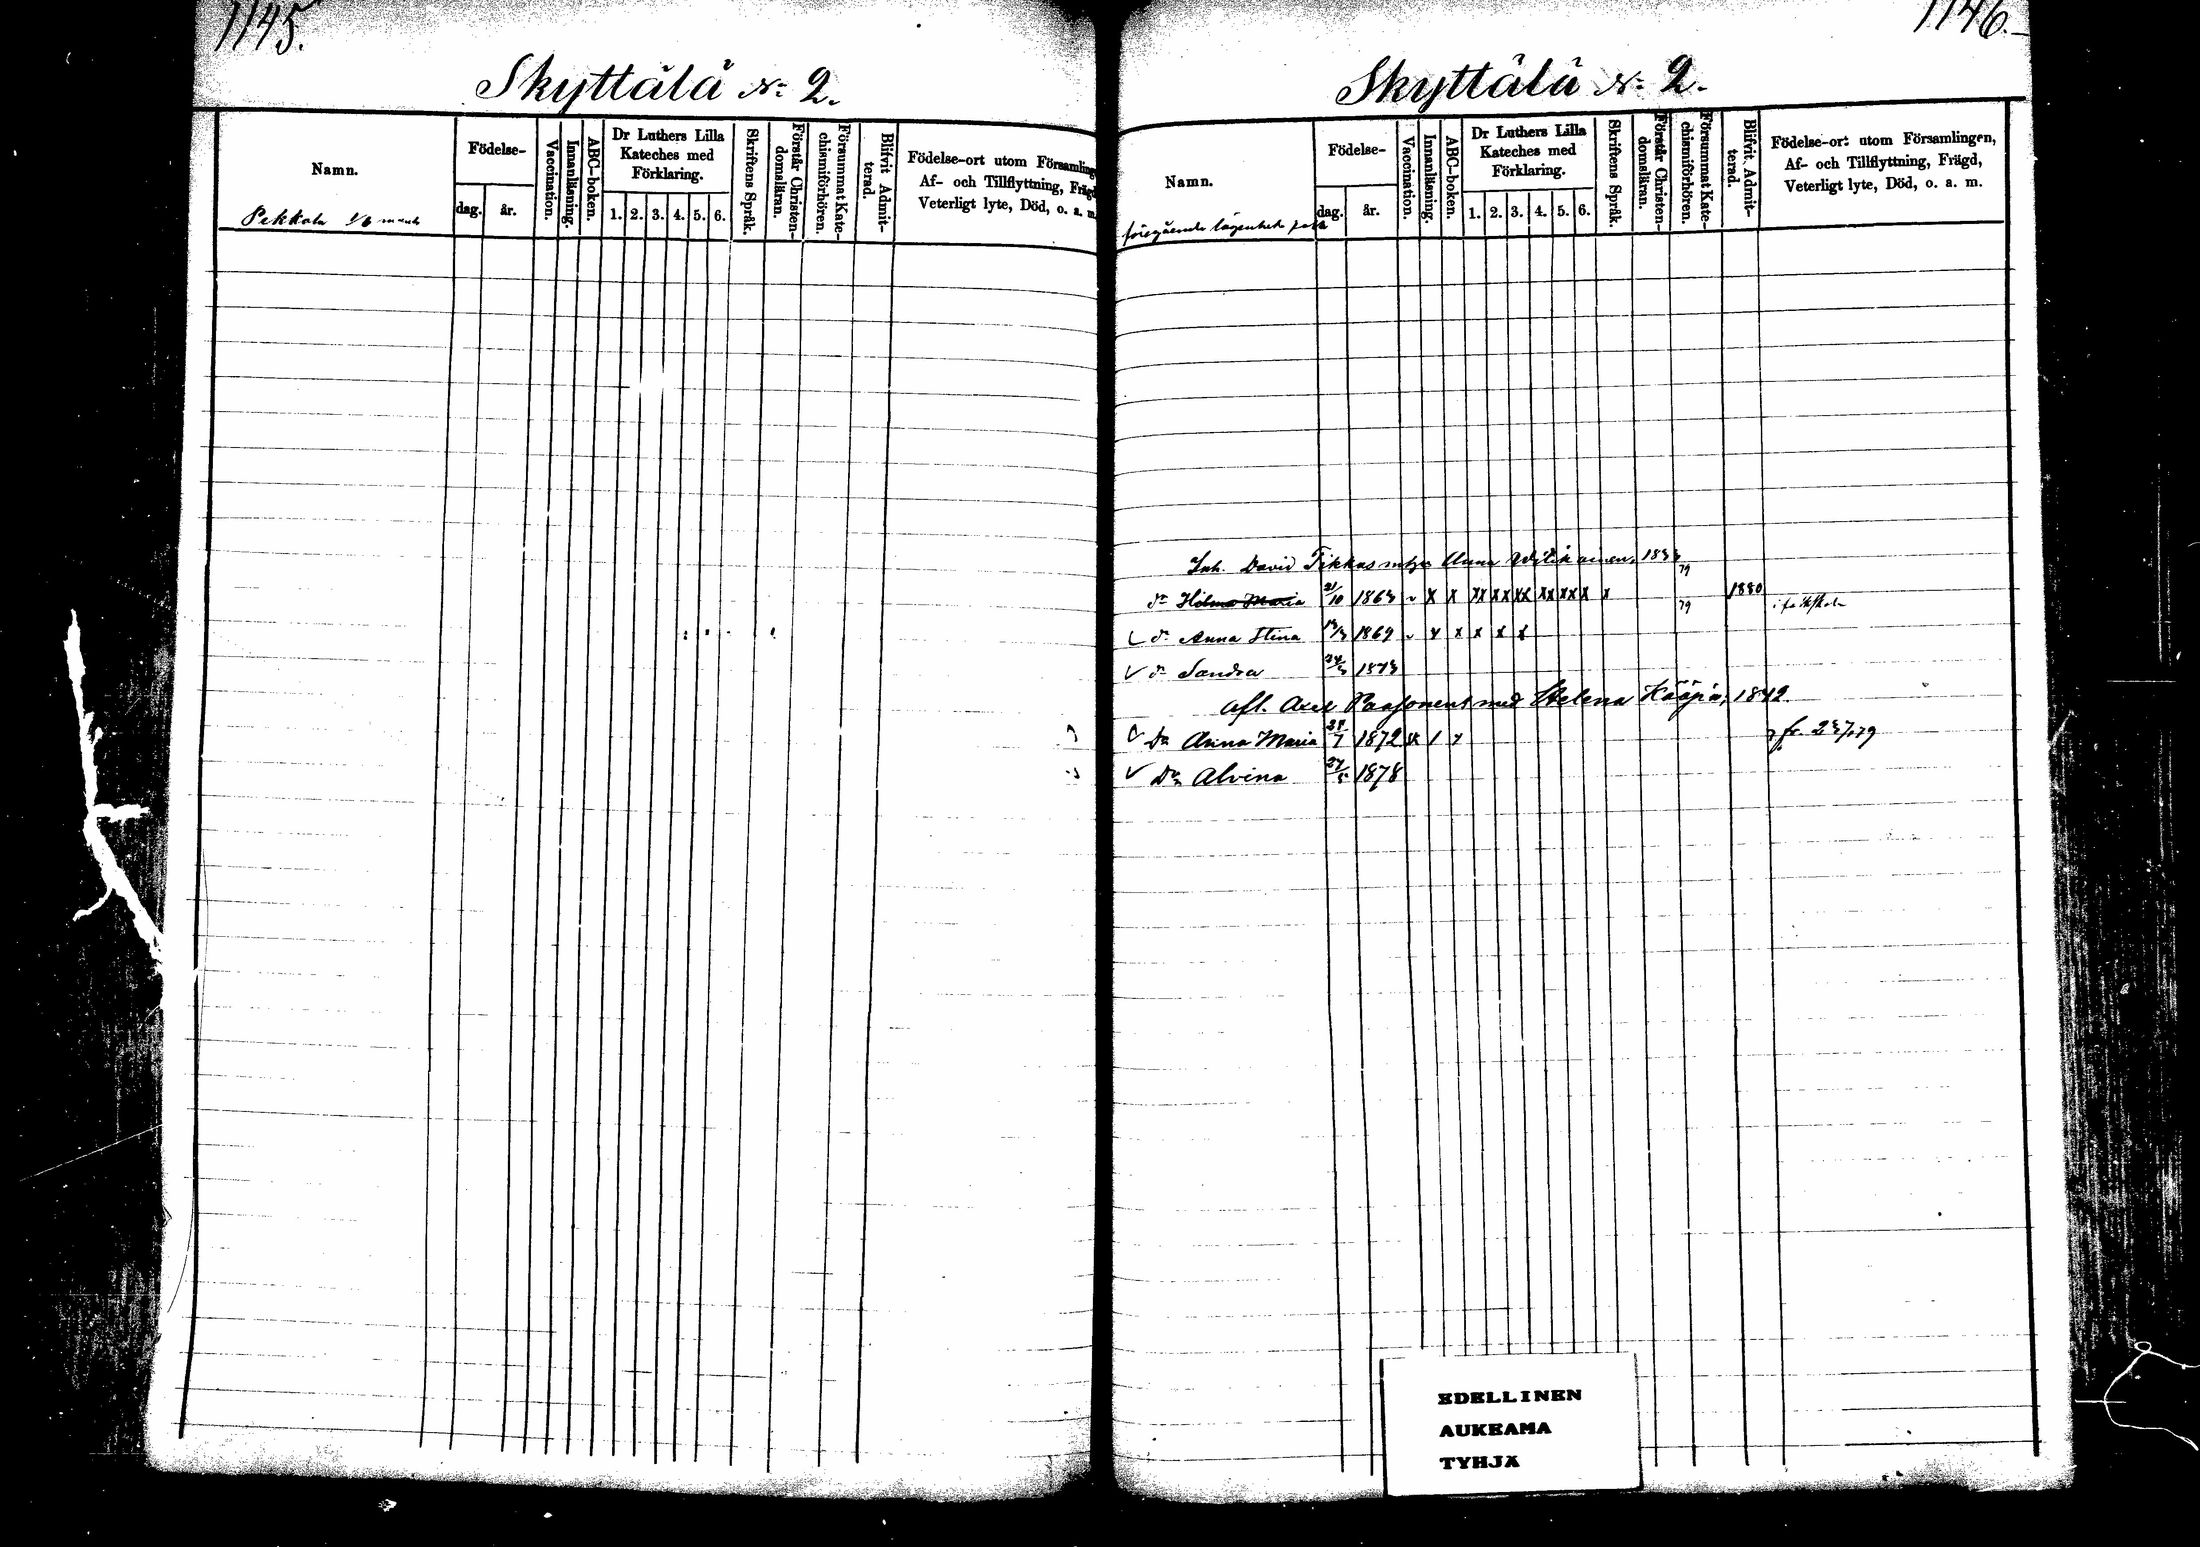 1145.
Skyttälä N: 2.
Namn.
Födelse-
dag. år.
Vaccination.
Innanläsning.
ABC-boken.
Dr Luthers Lilla
Kateches med
Förklaring.
1. 2. 3. 4. 5. 6.
Skriftens Språk.
Förstår Christen-
domsläran.
Försummat Kate-
chismiförhören.
Blifvit Admit-
terad.
Födelse-ort utom Församling
Af- och Tillflyttning, Fräg
Veterligt lyte, Död, o. a. m
Pekkala 1/6
1146.
Skyttälä N: 2.
Namn.
Födelse-
dag. år.
Vaccination.
Innanläsning.
ABC-boken.
Dr Luthers Lilla
Kateches med
Förklaring.
1. 2. 3. 4. 5. 6.
Skriftens Språk.
Förstår Christen-
domsläran.
Försummat Kate-
chismiförhören.
Blifvit Admit-
terad.
Födelse-ort utom Församlingen,
Af- och Tillflyttning, Frägd,
Veterligt lyte, Död, o. a. m.
föregående lägenhet
Inh. David Tikkas Anna
79
dr Hilma Maria 21/10 1863 x x xx xx xx xx xx x x 1880
79
dr Anna Stina 1869 x x x x x
dr Sandra 1873
Axel med Helena 1842.
Dr Anna Maria 28/7 1872 x / x fr. 79
Dr Alvina 27/5 1878
EDELLINEN
AUKEAMA
TYHJÄ